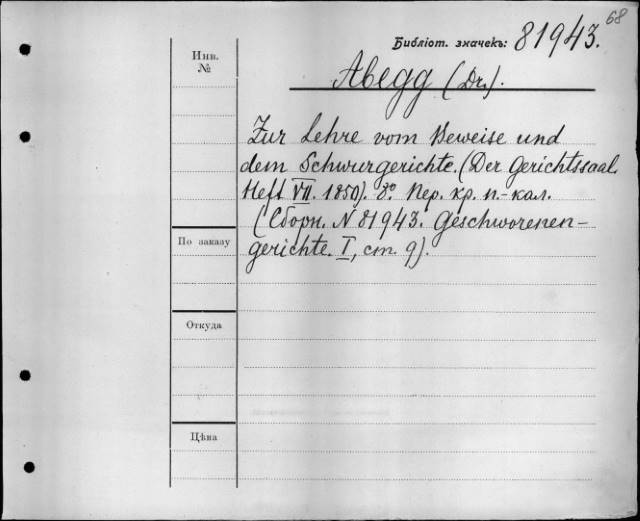 68
Библіот. значекъ: 81943.
Инв.
№
Abegg (Dr.).
Zur Lehre vom Beweise und
dem Schwurgerichte. (Der Gerichtssaal.
Heft VII. 1850). 8º. Пер. кр. п.-кал.
(Сборн. N 81943. Geschworenen-
gerichte. I, ст. 9).
По заказу
Откуда
Цѣна